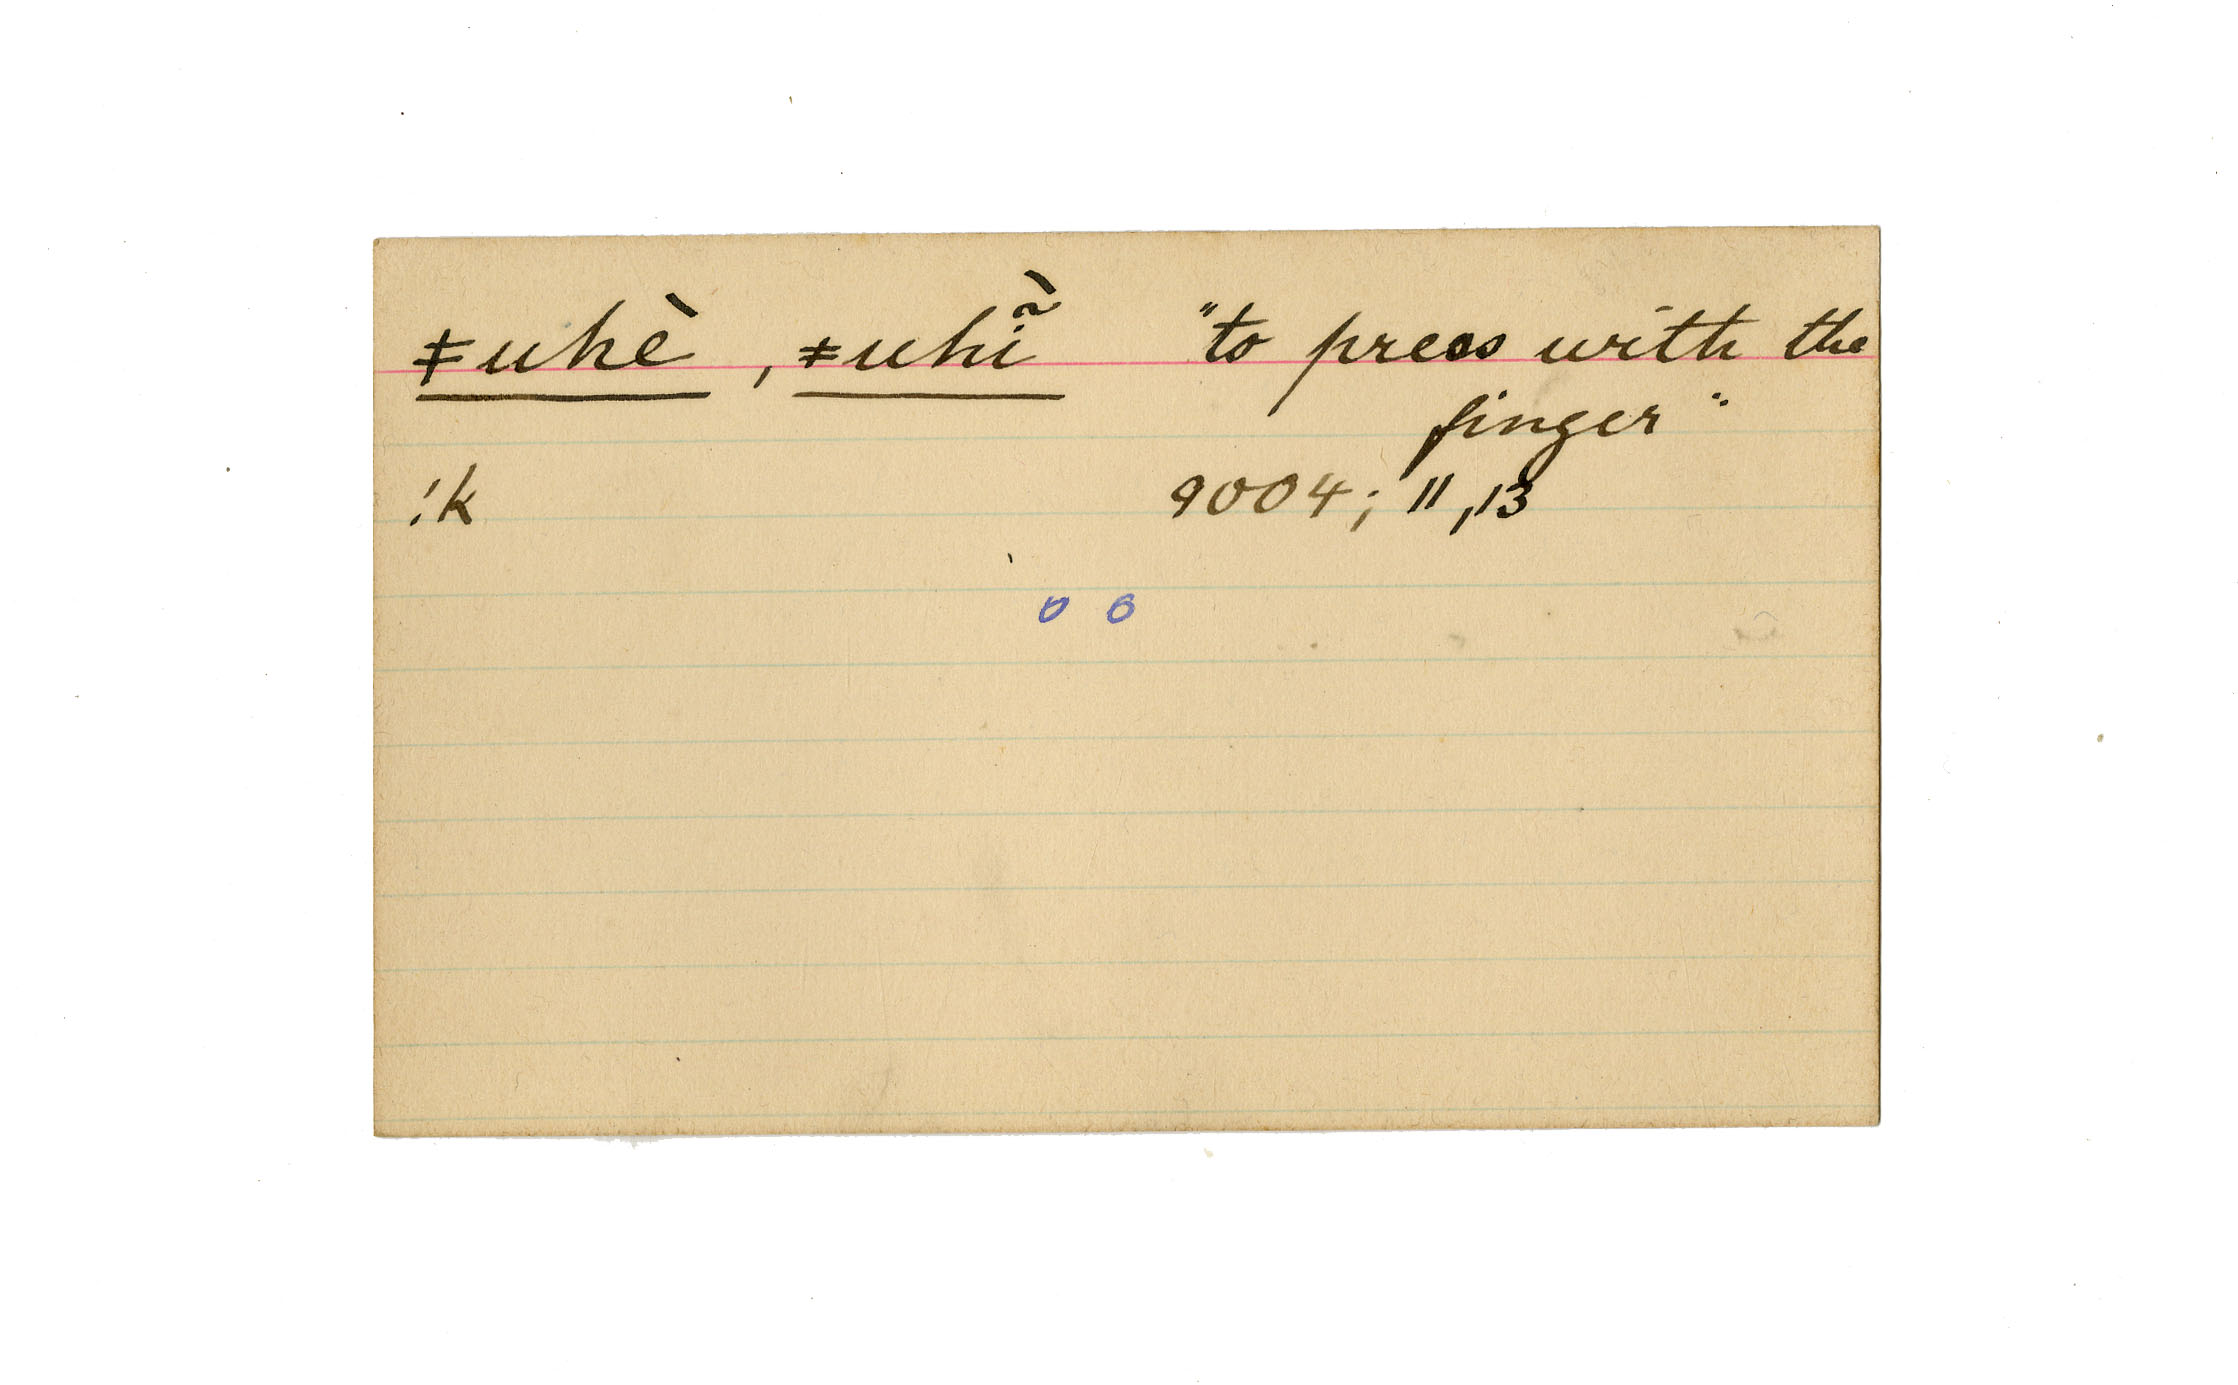 ǂuhè, ǂuhĩ̀ "to press with the
finger"
!k 9004; 11, 13
o o